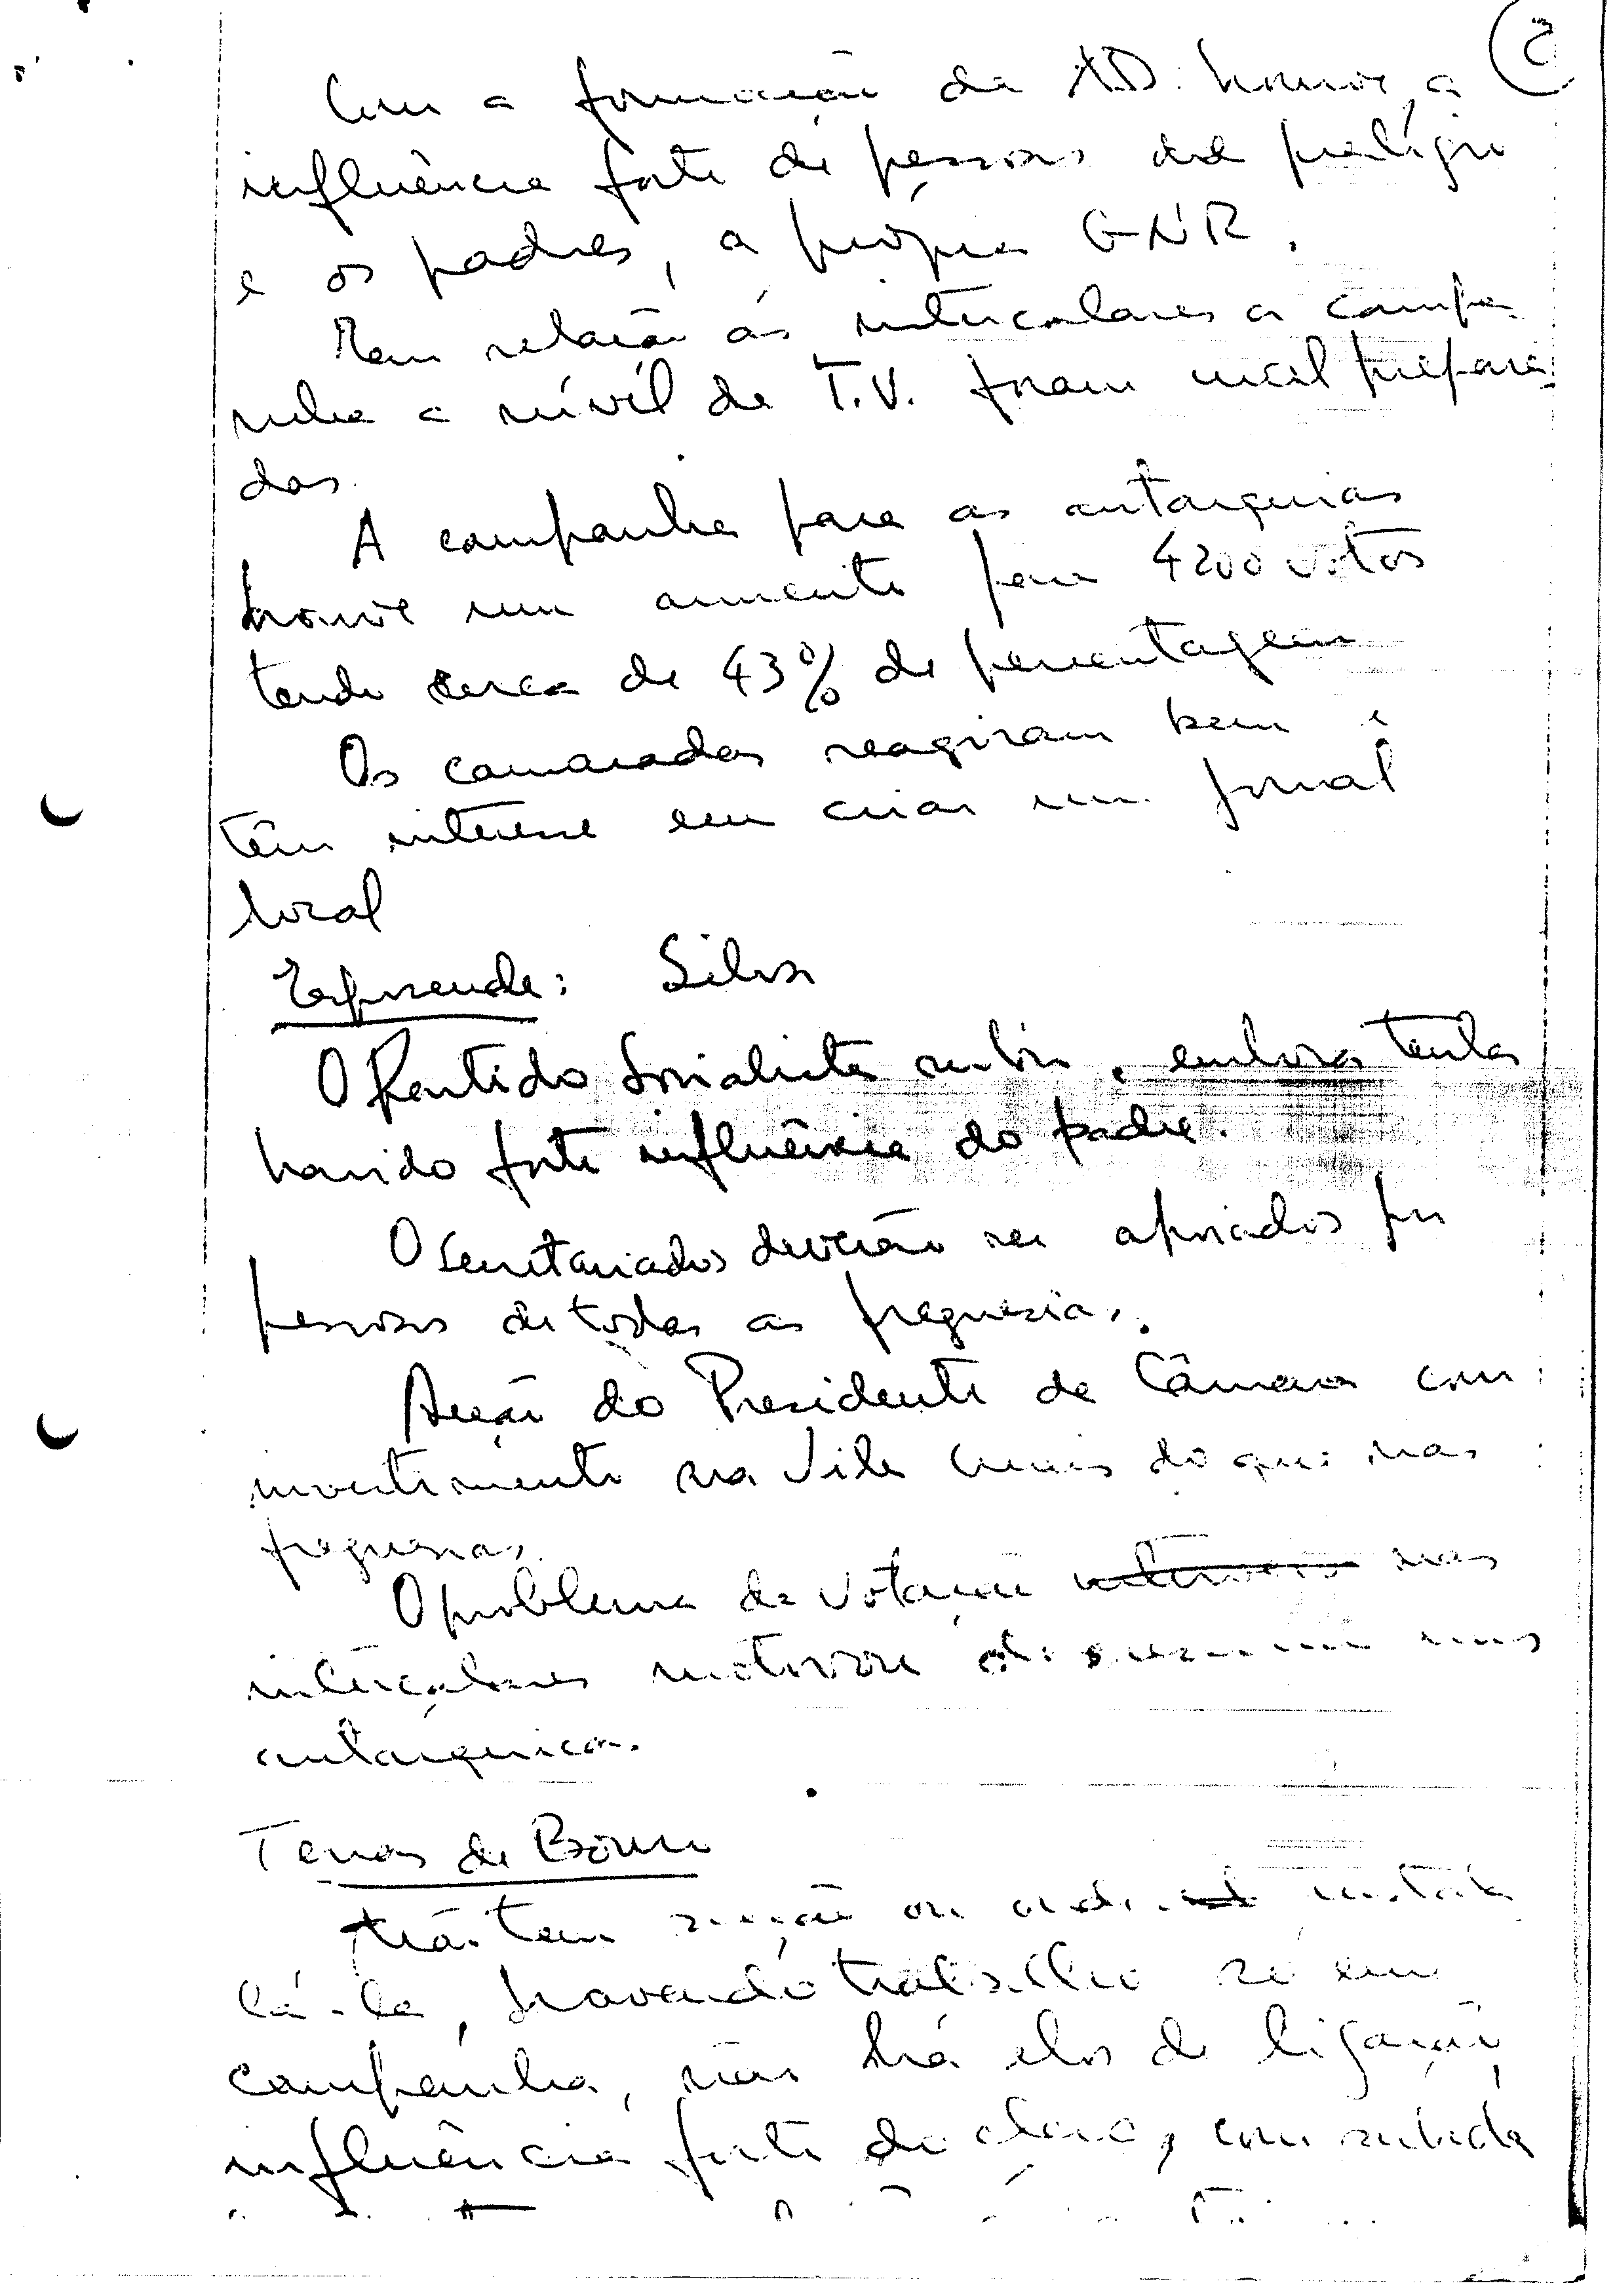 2
Com a formação da AD. houve a
influência forte de pessoas de prestígio
e os padres, a própria GNR.
Em relação ás intercalares a campa-
nha a nível da T.V. foram mal prepara-
das.
A campanha para as autarquias
houve um aumento para 4200 votos
tendo cerca de 43% de percentagem
Os camaradas reagiram bem e
têm interesse em criar um jornal
local
Esposende: Silva
O Partido Socialista subiu, embora tenha
havido forte influência do padre.
O Secretariados deverão ser apoiados por
pessoas de todas as freguesias.
Acção do Presidente da Câmara com
investimento na Vila mais do que nas
freguesias.
O problema da votação nas
intercalares motivou nas
autárquicas.
Terras de Bouro
Não tem secção ou instala
lá-la, havendo trabalho só em
campanha, não há elos de ligação,
influência forte do clero, com subida